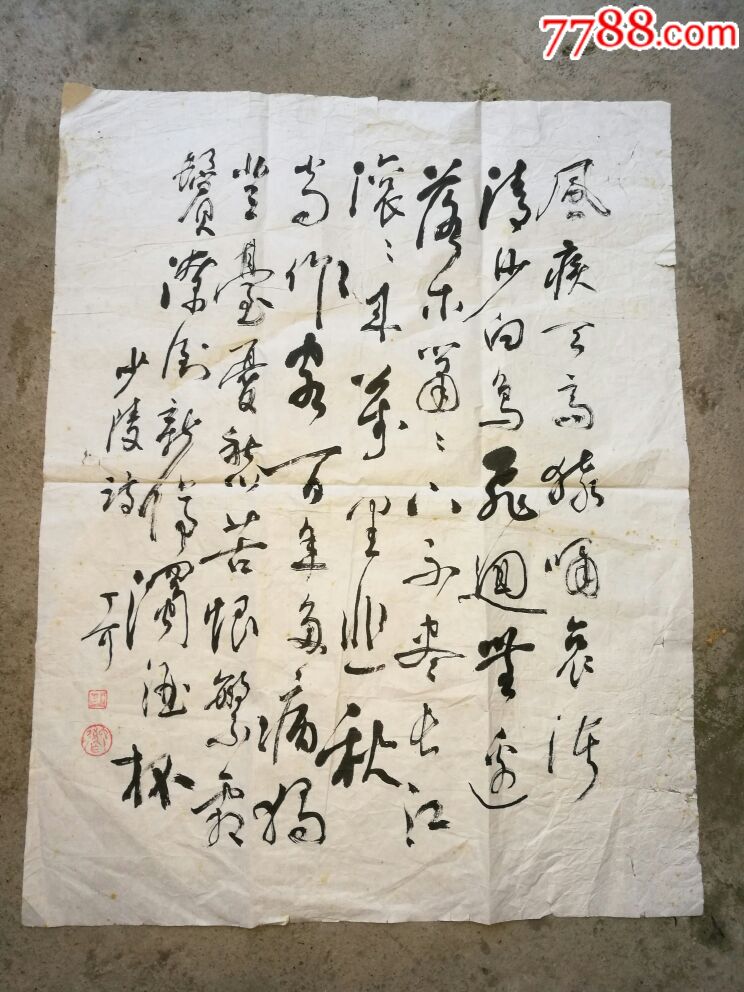 7788.com
風疾天高猿嘯哀渚
清沙白鳥飛迴無邊
落木蕭〻下不盡長江
滾〻來萬里悲秋
常作客百年多病獨
登臺憂愁苦恨繁霜
鬢潦倒新停濁酒杯
少陵詩
丁可